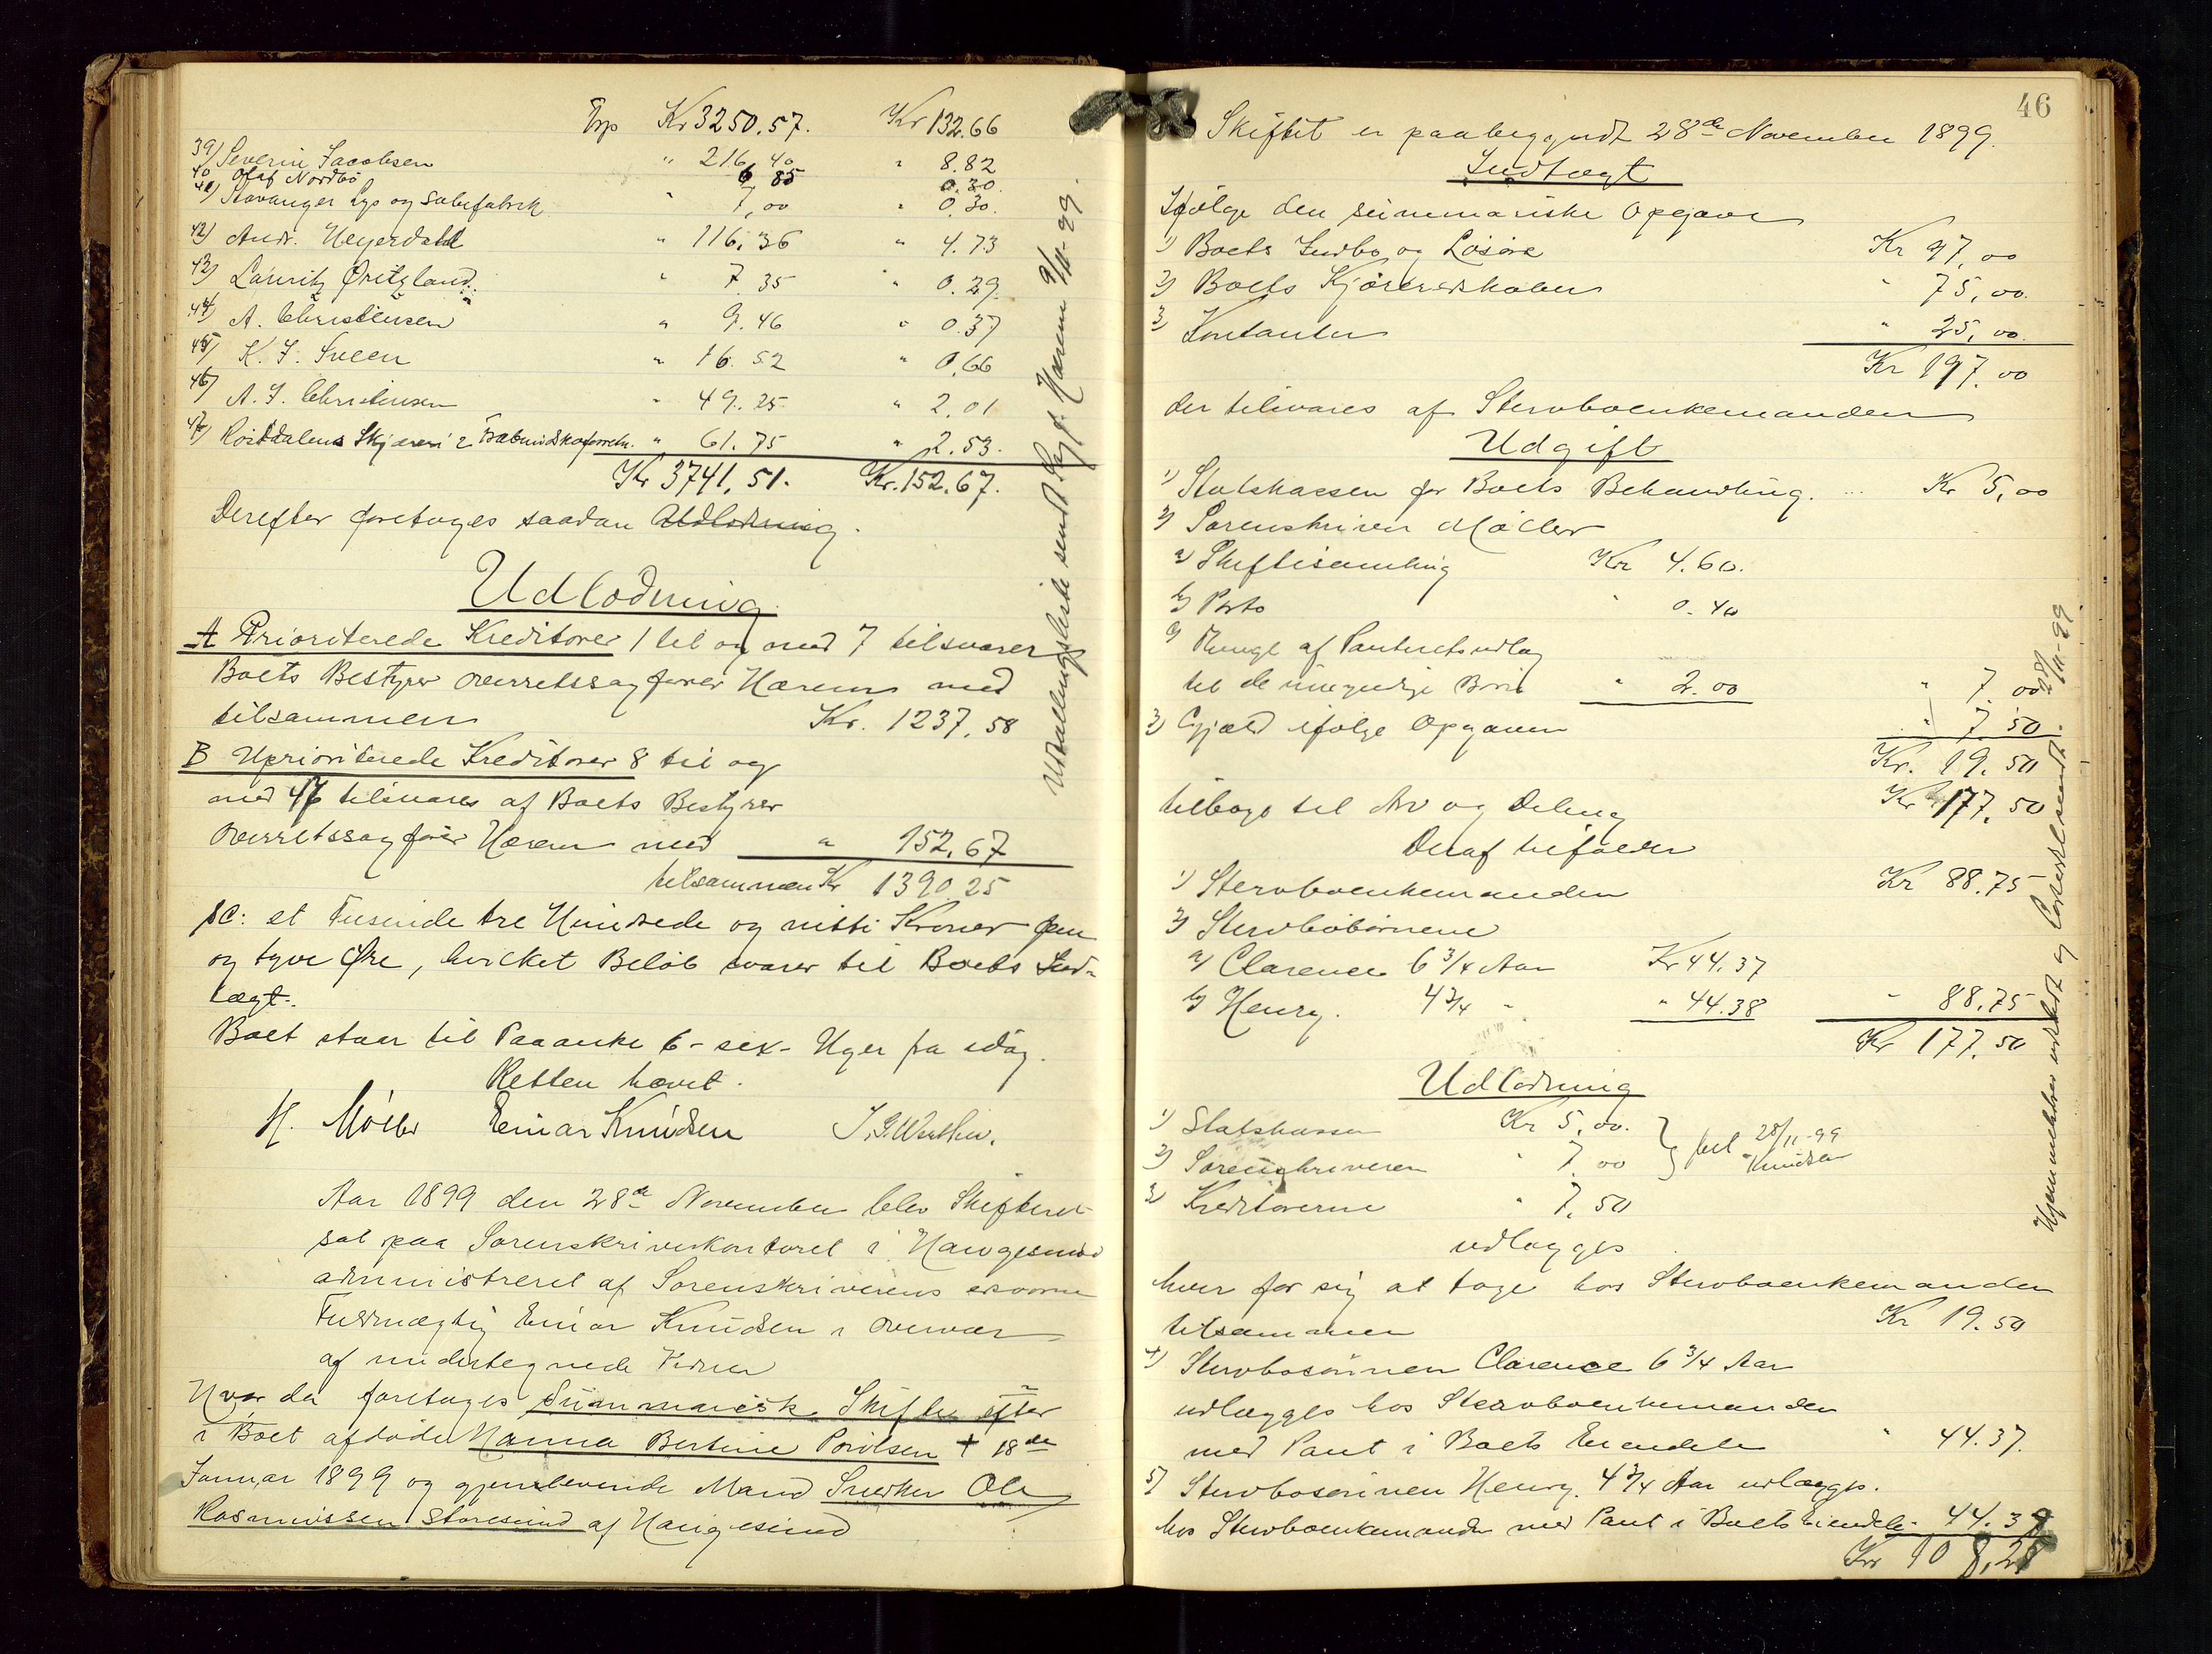 Trp Kr 3250.57. Kr 132.66
39) Severin Jacobsen " 216,40 " 8.82
40 Olaf Nordbö 6 85 0.30.
41) Stavanger Lys og Sæbefabrik " 7,00 " 0.30.
42) Andr. Heyerdahl " 116,36 " 4.73
43) Lauritz Öritzland " 7 35 " 0.29
44) A. Christensen " 9.46 " 0.37
45) K. J. Sveen " 16.52 " 0,66
46) A. J. Christensen " 49.25 " 2,01
47) Kr 61.75 " 2.53.
Kr 3741,51. Kr. 152.67.
Derefter foretoges saadan Udlodning.
Udlodning
A Prioriterede Kreditorer 1 til og med 7 tilsvarer
Boets Bestyrer Overretssagförer Hærem med
tilsammen Kr. 1237,58
B Uprioriterede Kreditorer 8 til og
med 47 tilsvares af Boets Bestyrer
Overretssagförer Hærem med " 152,67
tilsammen Kr 1390.25
sc: et Tusinde tre Hundrede og nitti Kroner fem
og tyve Öre, hvilket Belöb svarer til Boets Ind-
tægt.
Boet staar til Paaanke 6-sex-Uger fra idag.
Retten hævet.
H. Möller Einar Knudsen
Udtallingsliste sendt Sagf. Hærem 9/11-99.
Aar 1899 den 28de November blev Skifteret
sat paa Sorenskriverkontoret i Haugesund
administreret af Sorenskriverens edsvorne
Fuldmægtig Einar Knudsen i Overvær
af undertegnede Vidner
Hvor da foretoges Summarisk Skifte efter
i Boet afdöde Hanna Bertine Povlsen † 18de
Januar 1899 og gjenlevende Mand Snedker Ole
Rasmussen Storesund af Haugesund
46
Skiftet er paabegyndt 28de November 1899.
Indtægt
Ifölge den summariske Opgave
1) Boets Indbo og Lösöre Kr 97,00
2) Boets Kjöreredskaber " 75,00.
3) Kontanter " 25,00.
Kr 197.00
der tilsvares af Stervboenkemanden
Udgift
1) Statskassen for Boets Behandling. Kr 5,00
2) Sorenskriver Möller
a) Skiftesamling Kr 4.60.
b) Porto " 0.40
c) af Panteretsudlæg
til de umyndige Börn " 2.00 " 7.00
3) Gjæld ifölge Opgaven " 7.50
Kr. 19.50
tilbage til Arv og Deling Kr 177.50
Deraf tilfalder
1) Stervboenkemanden Kr 88.75
2) Stervbobörnene
a) Clarence 6 3/4 Aar Kr 44.37
b) Henry. 4 3/4 " " 44.38 " 88.75
Kr 177.50
Udlodning
1) Statskassen Kr 5,00.
2) Sorenskriveren " 7.00
28/11-99 Knudsen
3) Kreditorerne " 7.50
udlægges
hver for sig at tage hos Stervboenkemanden
tilsammen Kr 19.50
4) Stervbosönnen Clarence 6 3/4 Aar
udlægges hos Stervboenkemanden
med Pant i Boets Eiendele " 44.37.
5) Stervbosönnen Henry. 4 3/4 Aar udlægges.
hos Stervboenkemanden med Pant i Boets Eiendele 44.38
Kr 108,25
Hjemmelsbrev udstedt og sendt 28/11-99